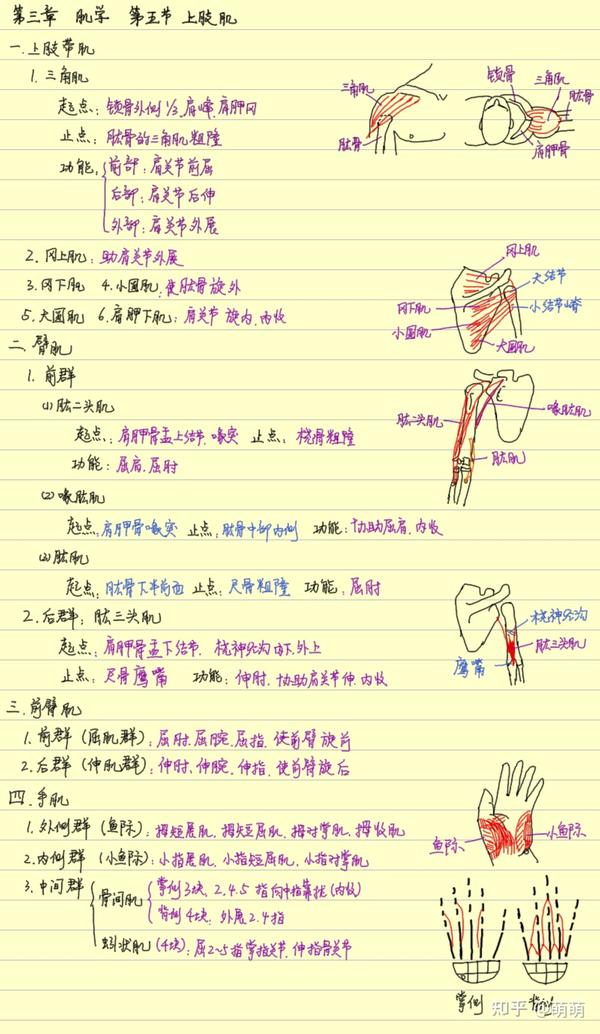 第三章 肌学 第五节 上肢肌
一.上肢带肌
1. 三角肌
起点:锁骨外侧1/3.肩峰.肩胛冈
止点:肱骨的三角肌粗隆
功能:
前部:肩关节前屈
后部:肩关节后伸
外部:肩关节外展
三角肌
肱骨
锁骨
三角肌
肱骨
肩胛骨
2. 冈上肌:助肩关节外展
3.冈下肌 4.小圆肌:使肱骨旋外
5.大圆肌 6.肩胛下肌:肩关节旋内.内收
冈上肌
大结节
小结节嵴
冈下肌
小圆肌
大圆肌
二.臂肌
1. 前群
(1)肱二头肌
起点:肩胛骨盂上结节.喙突 止点:桡骨粗隆
功能:屈肩.屈肘
(2)喙肱肌
起点:肩胛骨喙突 止点:肱骨中部内侧 功能:协助屈肩.内收
(3)肱肌
起点:肱骨下半前面 止点:尺骨粗隆 功能:屈肘
肱二头肌
喙肱肌
肱肌
2.后群:肱三头肌
起点:肩胛骨盂下结节.桡神经沟内下.外上
止点:尺骨鹰嘴 功能:伸肘.协助肩关节伸.内收
桡神经沟
肱三头肌
鹰嘴
三.前臂肌
1.前群(屈肌群):屈肘.屈腕.屈指.使前臂旋前
2.后群(伸肌群):伸肘.伸腕.伸指.使前臂旋后
四.手肌
1.外侧群(鱼际):拇短展肌.拇短屈肌.拇对掌肌.拇收肌
2.内侧群(小鱼际):小指展肌.小指短屈肌.小指对掌肌
3.中间群
骨间肌
掌侧3块:2.4.5指向中指靠拢(内收)
背侧4块:外展2.4指
蚓状肌(4块):屈2~5指掌指关节.伸指骨关节
鱼际
小鱼际
掌侧
背侧
知乎 @萌萌